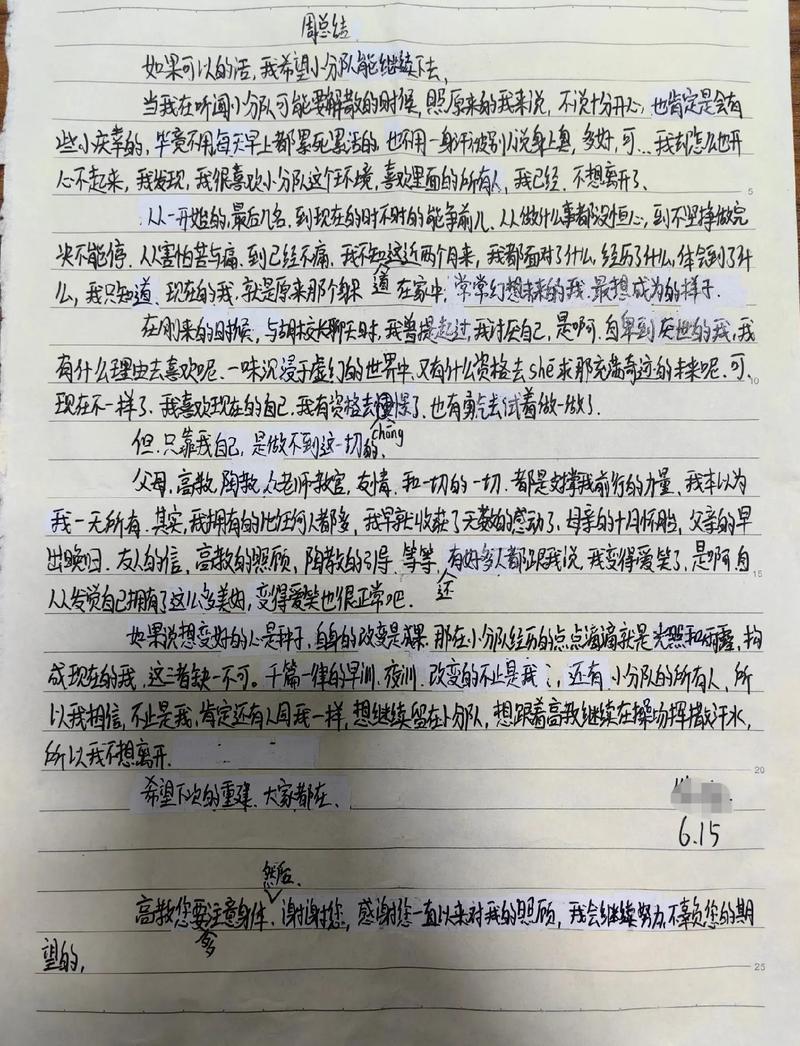 周总结
如果可以的话,我希望小分队能继续下去,
当我在听闻小分队可能要解散的时候,照原来的我来说,不说十分开心,也肯定是会有
些小庆幸的,毕竟不用每天早上都累死累活的,也不用一身汗被别人说身上臭,多好,可...我却怎么也开
心不起来,我发现,我很喜欢小分队这个环境,喜欢里面的所有人,我已经.不想离开了、
从一开始的,最后几名,到现在的时不时的能争前几.从做什么事都没恒心,到不坚持做完
决不能停.从害怕苦与痛.到已经不痛.我不知道这近两个月来,我都面对了什么,经历了什么,体会到了什
么,我只知道.现在的我.就是原来那个躲在家中,常常幻想未来的我.最想成为的样子.
在刚来的时候,与胡校长聊天时,我曾提起过,我讨厌自己,是啊.自卑到厌世的我,我
有什么理由去喜欢呢.一味沉浸于虚幻的世界中,又有什么资格去she求那充满奇迹的未来呢.可、
现在不一样了、我喜欢现在的自己.我有资格去憧chōng憬了、也有勇气去试着做一做了.
但.只靠我自己,是做不到这一切的,
父母,高教,陶教,众老师教官,友情.和一切的一切.都是支撑我前行的力量、我本以为
我一无所有.其实,我拥有的比任何人都多,我早就收获了无数的感动了、母亲的十月怀胎,父亲的早
出晚归.友人的信,高教的照顾,陶教的引导、等等,还有好多人都跟我说,我变得爱笑了,是啊,自
从发觉自己拥有了这么多美好,变得爱笑也很正常吧.
如果说想变好的心是种子,自身的改变是成果.那在小分队经历的点点滴滴就是光照和雨露,构
成现在的我,这三者缺一不可。千篇一律的早训,夜训.改变的不止是我,还有.小分队的所有人,所
以我相信,不止是我,肯定还有人同我一样,想继续留在小分队,想跟着高教继续在操场挥撒汗水,
所以我不想离开.
希望下次的重建、大家都在、
6.15
高教您要多注意身体、然后、谢谢您,感谢您一直以来对我的照顾,我会继续努力,不辜负您的期
望的,